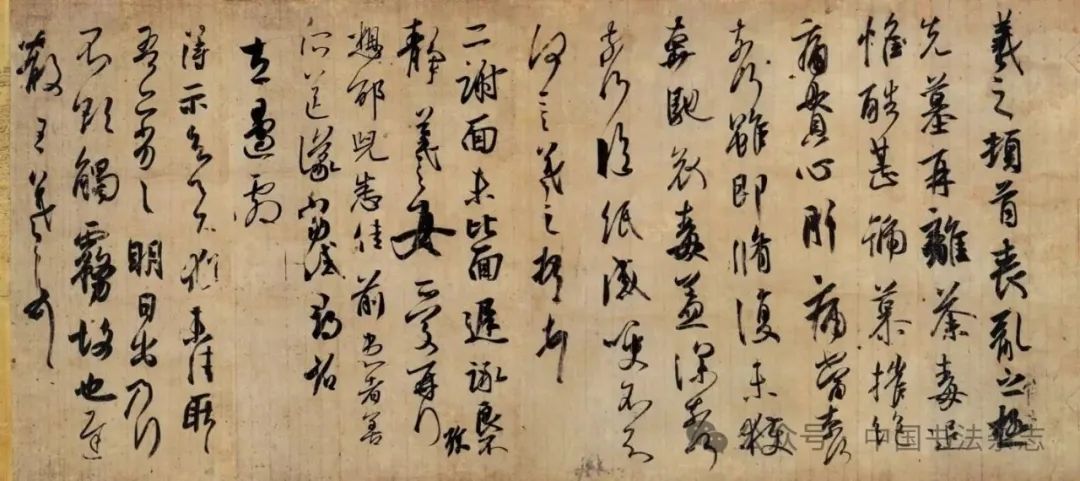 羲之頓首喪亂之極
先墓再離荼毒追
惟酷甚號慕摧絶
痛貫心肝痛當奈何
奈何雖即脩復未獲
奔馳哀毒益深奈何
奈何臨紙感哽不知
何言羲之頓首頓首
二謝面未比面遲詠良不
靜羲之女愛再拜
想邵兒悉佳前患者善
所送議當試尋省
左邊劇
得示知足下猶未佳耿耿
吾亦劣劣明日出乃行
不欲觸霧故也遲
散王羲之頓首
公众号 · 中国书法杂志